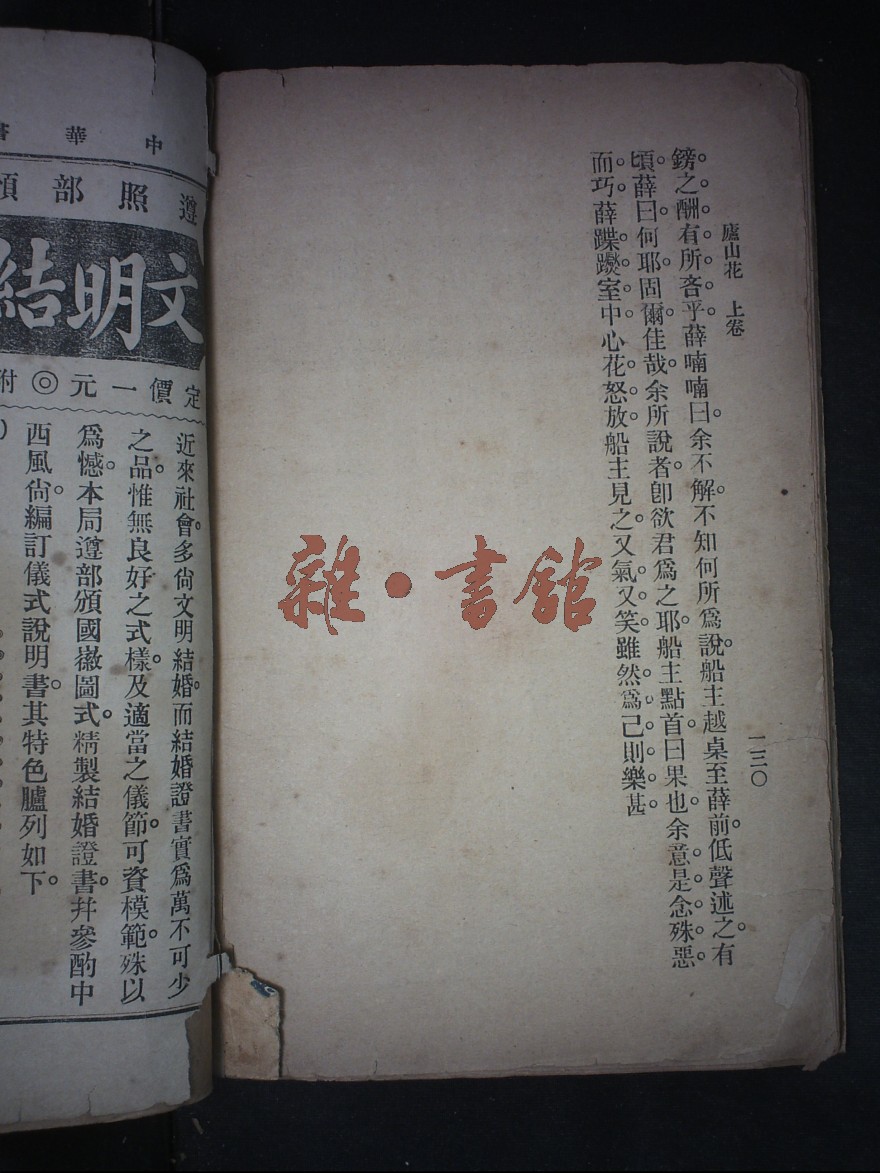 廬山花　上卷
一三〇
鎊之酬。有所吝乎。薛喃喃曰。余不解。不知何所爲說。船主越桌至薛前。低聲述之。有
頃。薛曰。何耶。固爾佳哉。余所說者。卽欲君爲之耶。船主點首曰。果也。余意是念殊惡。
而巧。薛蹀躞室中。心花怒放。船主見之。又氣又笑。雖然。爲己則樂甚。
雜·書館
中華書
遵照部頒
文明結
定價一元◎附
近來社會。多尙文明結婚。而結婚證書實爲萬不可少
之品。惟無良好之式樣。及適當之儀節。可資模範。殊以
爲憾。本局遵部頒國徽圖式。精製結婚證書。幷參酌中
西風尙。編訂儀式說明書。其特色臚列如下。